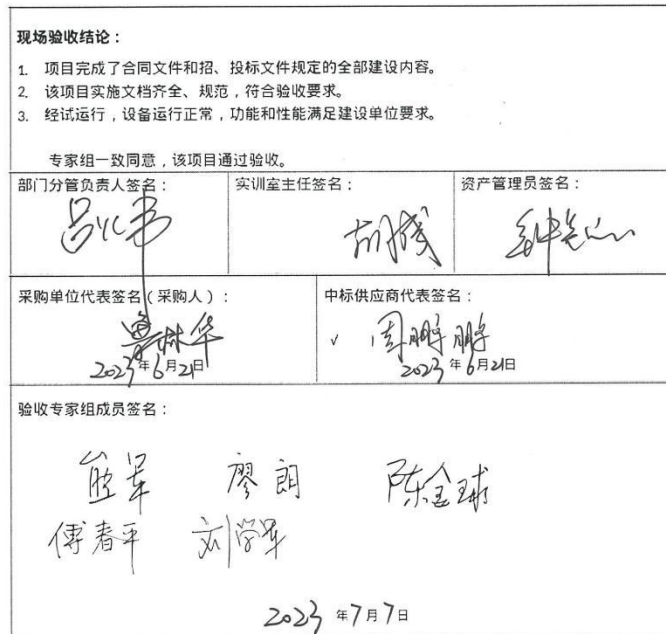 现场验收结论：
1. 项目完成了合同文件和招、投标文件规定的全部建设内容。
2. 该项目实施文档齐全、规范，符合验收要求。
3. 经试运行，设备运行正常，功能和性能满足建设单位要求。
专家组一致同意，该项目通过验收。
部门分管负责人签名： 实训室主任签名： 资产管理员签名：
胡成
采购单位代表签名（采购人）： 中标供应商代表签名：
林华 √ 周鹏鹏
2023年6月21日 2023年6月21日
验收专家组成员签名：
熊军 廖朗 陈金球
傅春平 刘学军
2023年7月7日